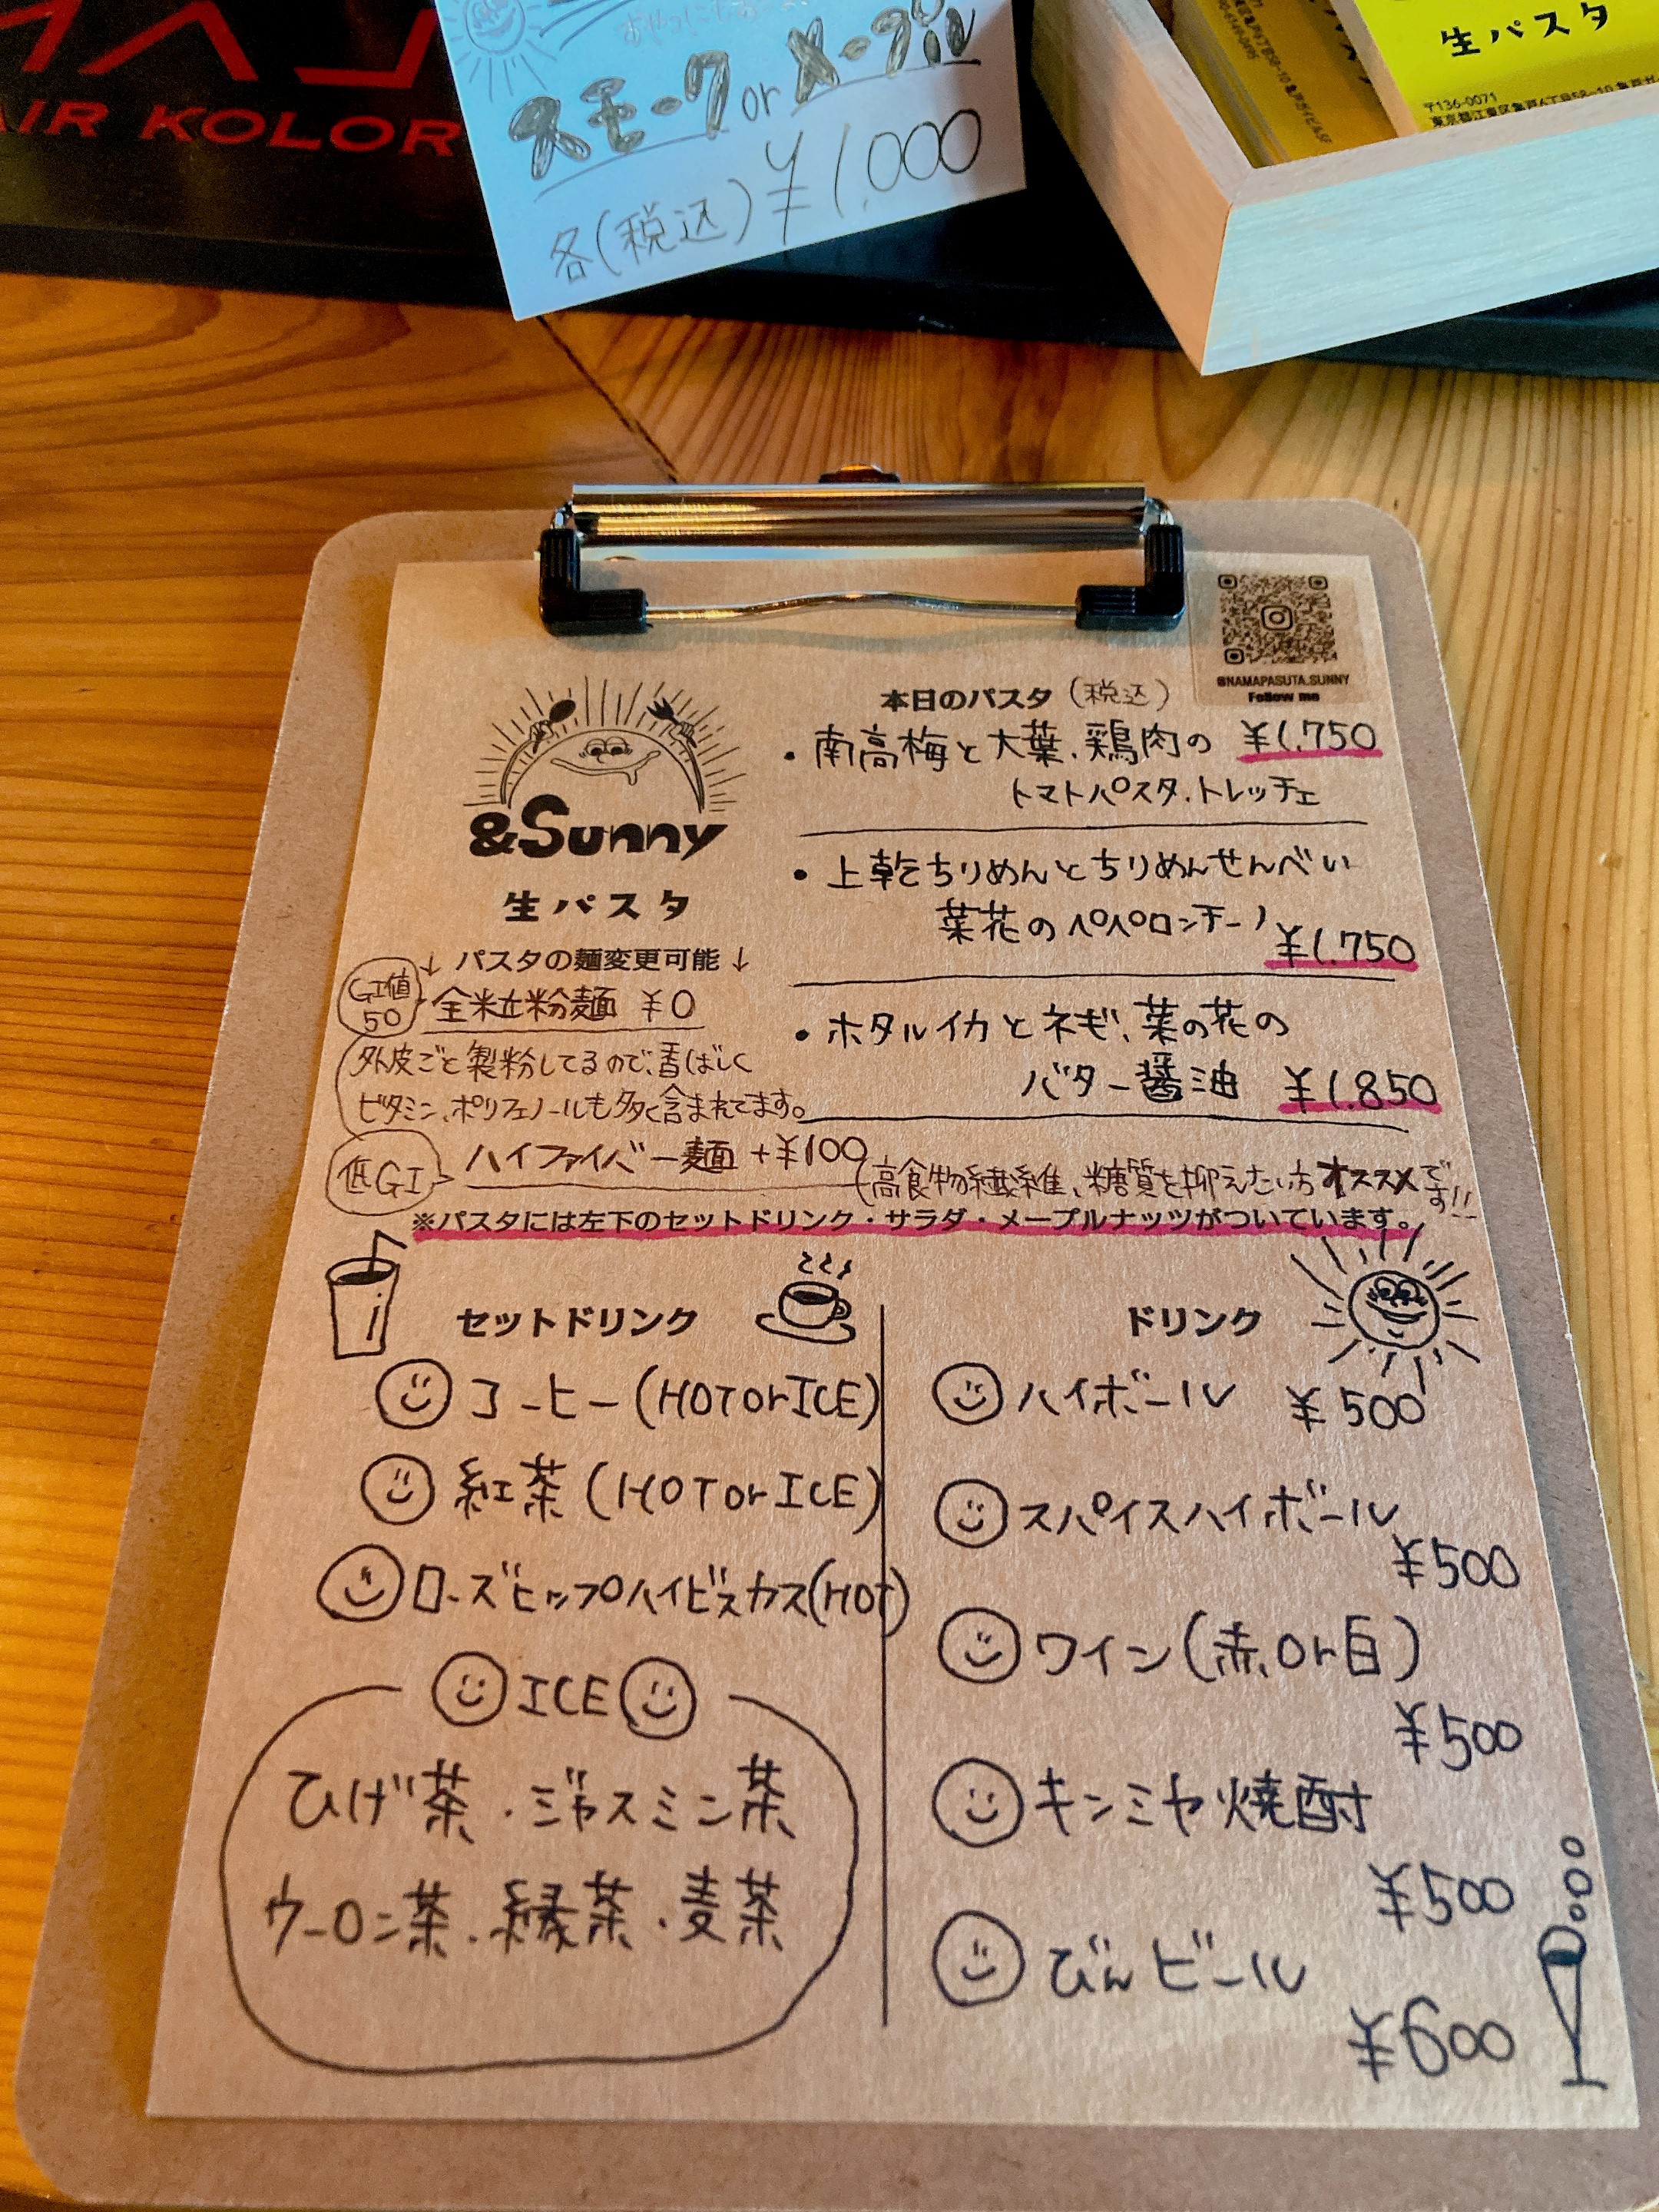 AIR KOLOR
スモーク or メープル
各(税込) ¥1,000
生パスタ
〒136-0071
@NAMAPASUTA.SUNNY
Follow me
&Sunny
生パスタ
↓ パスタの麺変更可能 ↓
GI値
50
全粒粉麺 ¥0
外皮ごと製粉してるので、香ばしく
ビタミン、ポリフェノールも多く含まれてます。
低GI
ハイファイバー麺 +¥100
(高食物繊維、糖質を抑えたい方オススメです!!
本日のパスタ (税込)
・南高梅と大葉、鶏肉の ¥1.750
トマトパスタ.トレッチェ
・上乾ちりめんとちりめんせんべい
菜花のペペロンチーノ ¥1.750
・ホタルイカとネギ、菜の花の
バター醤油 ¥1.850
※パスタには左下のセットドリンク・サラダ・メープルナッツがついています。
セットドリンク
コーヒー(HOT or ICE)
紅茶(HOT or ICE)
ローズヒップハイビスカス(HOT)
ICE
ひげ茶・ジャスミン茶
ウーロン茶.緑茶・麦茶
ドリンク
ハイボール ¥500
スパイスハイボール
¥500
ワイン(赤or白)
¥500
キンミヤ焼酎
¥500
びんビール
¥600